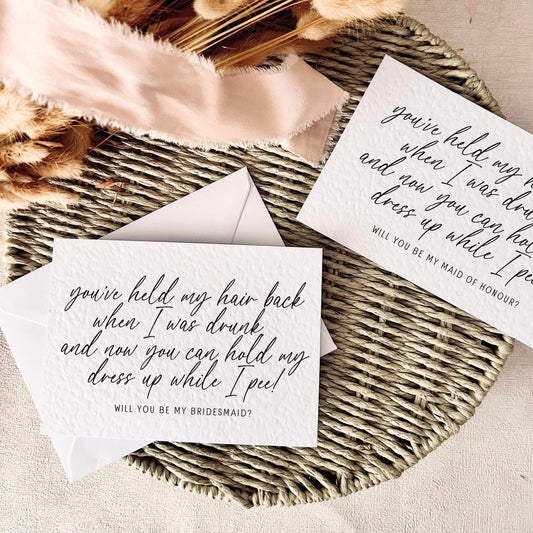 you've held my hair back
when I was drunk
and now you can hold my
dress up while I pee!
WILL YOU BE MY BRIDESMAID?
you've held my
when I was
and now you can
dress up while I pee!
WILL YOU BE MY MAID OF HONOUR?